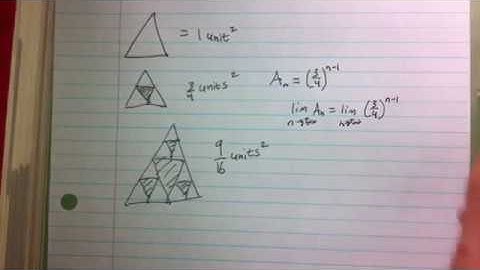 = 1 unit²
3/4 units²
Aₙ = (3/4)ⁿ⁻¹
lim Aₙ = lim (3/4)ⁿ⁻¹
n→∞ n→∞
9/16 units²